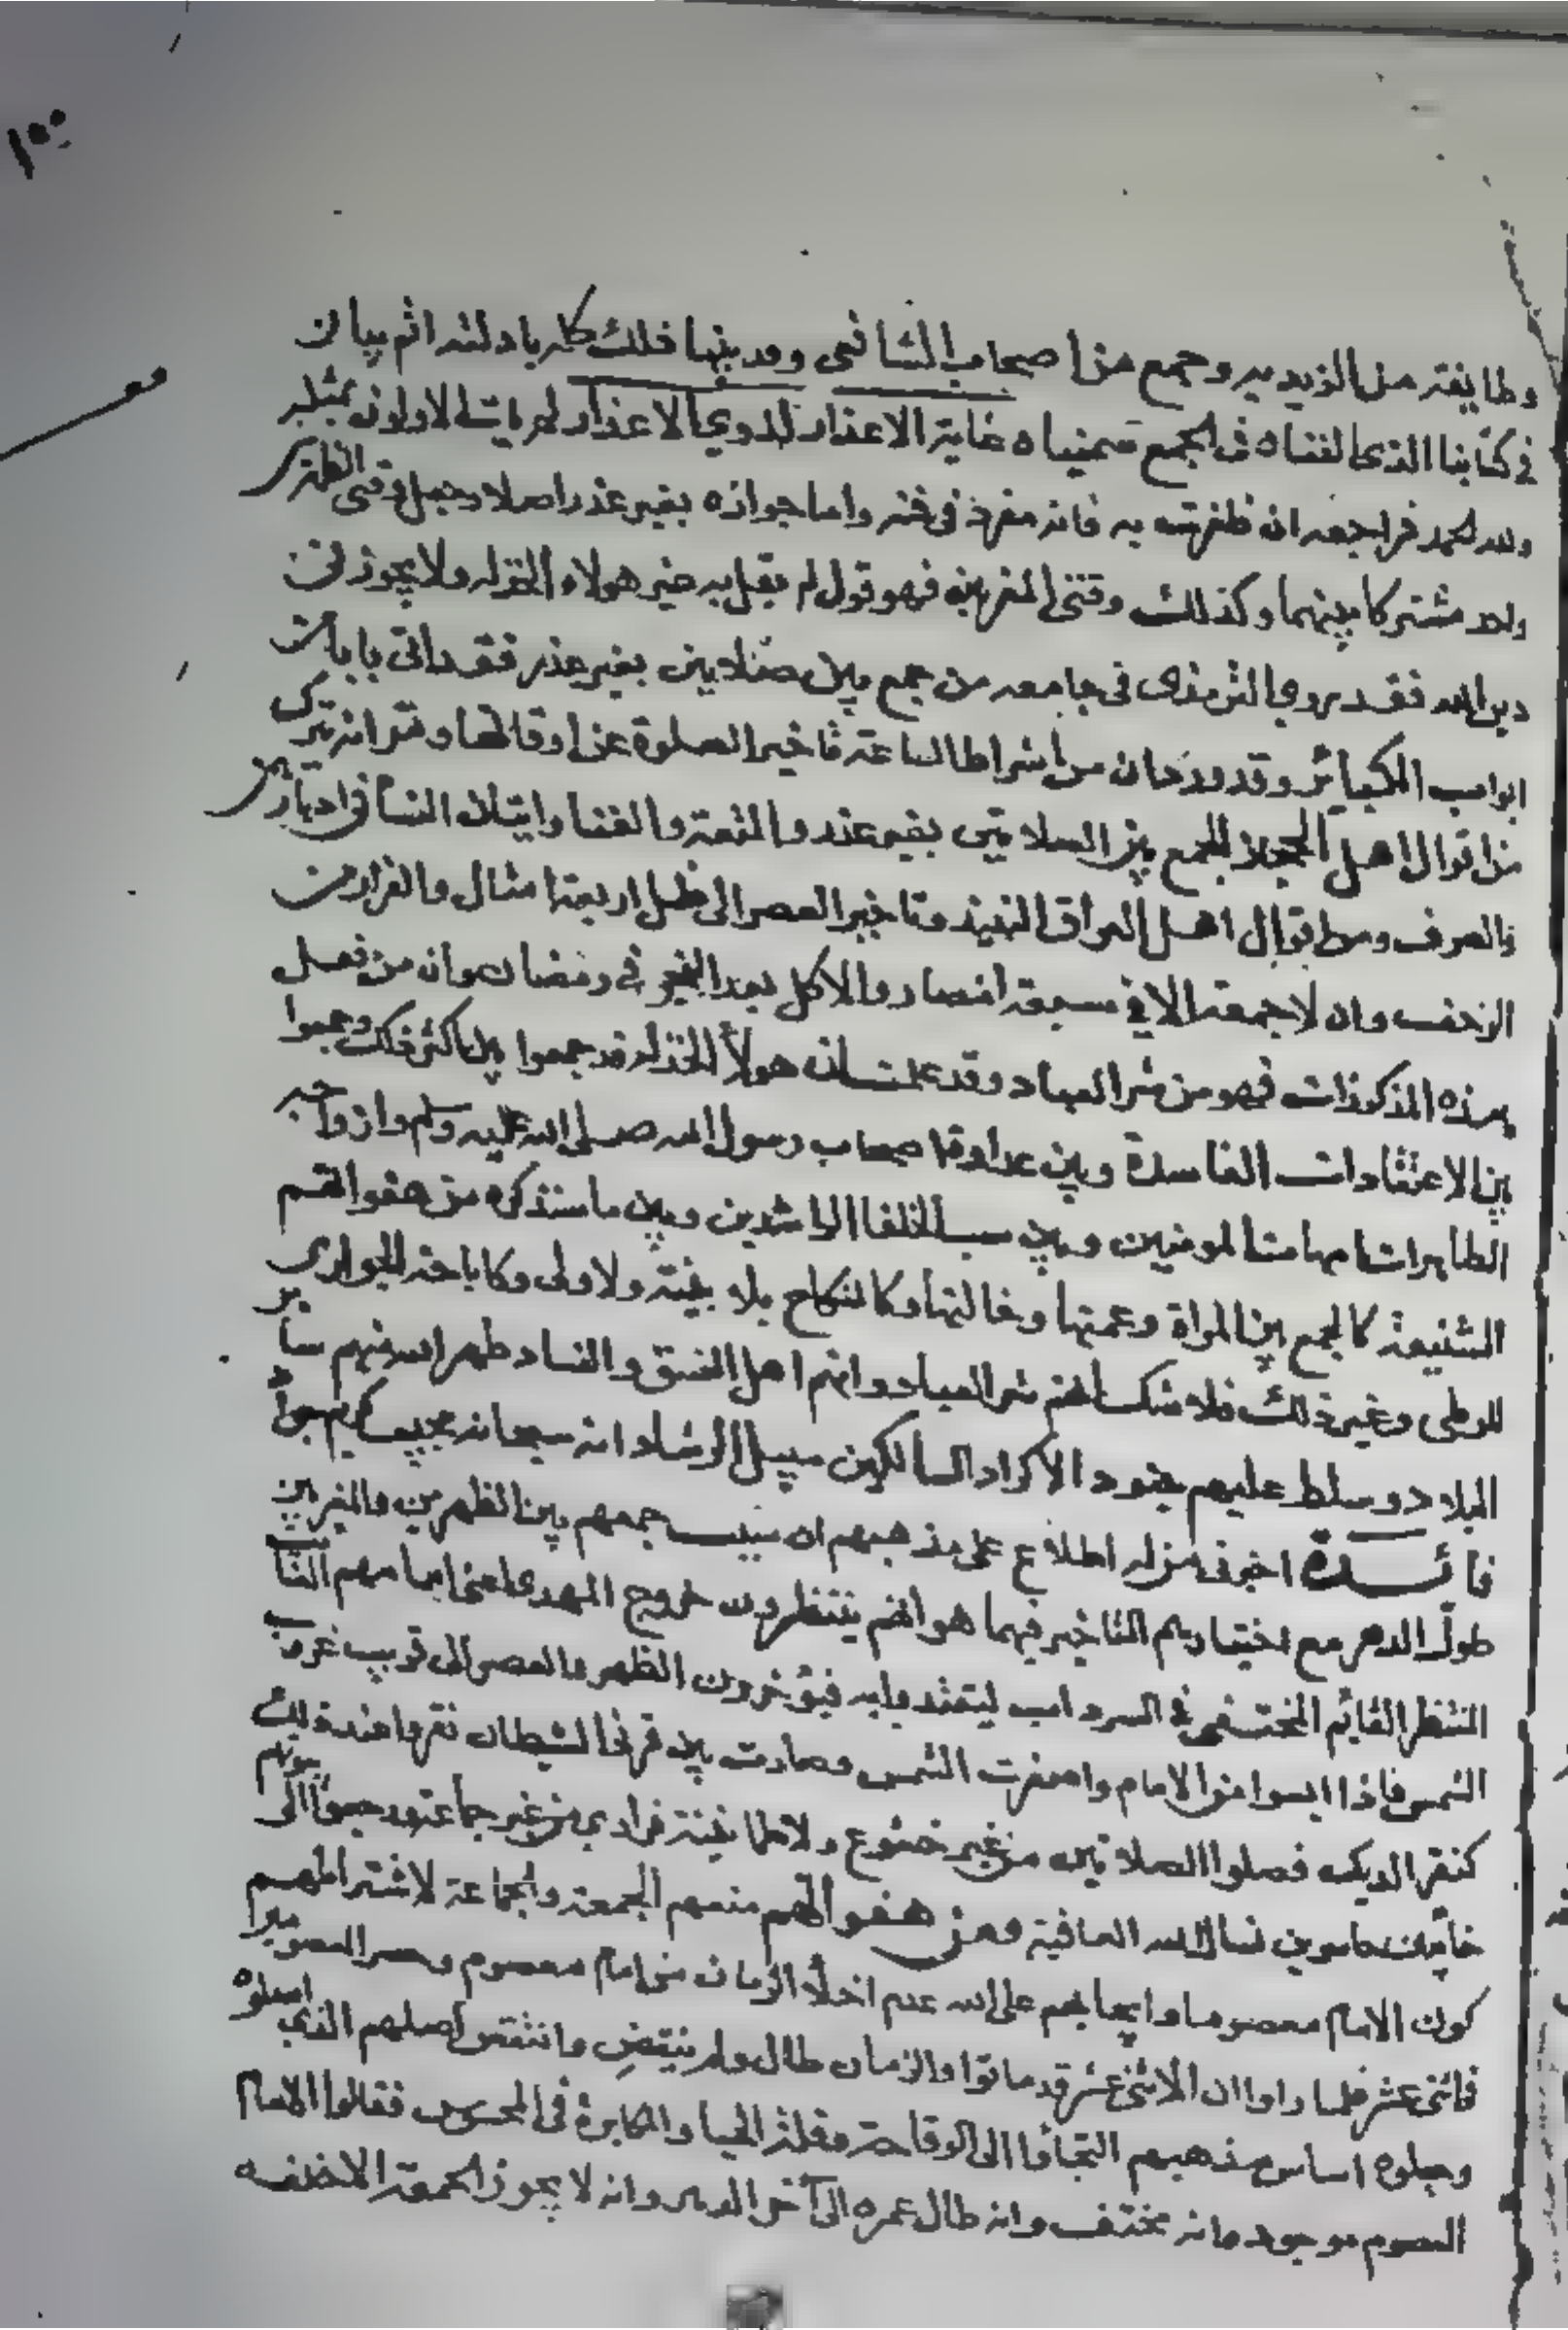 ١٠٠
وطايفة من الزيدية وجمع من اصحاب الشافعي وقد بينها ذلك كله بادلته اتم بيان
في كتابنا الذي الفناه في الجمع سميناه غاية الاعذار لذوي الاعذار لم يات الاولون بمثله
ولله الحمد فراجعه ان ظفرت به فانه مفرد في فنه واما جوازه بغير عذر اصلا وجعل وقتي الظهر
واحد مشتركا بينهما وكذلك وقتي المغربين فهو قول لم يقل به غير هولاء ولا يجوز في
دين الله فقد روي الترمذي في جامعه من جمع بين صلاتين بغير عذر فقد اتي بابا من
ابواب الكبائر وقد ورد ان من اشراط الساعة تاخير الصلوة عن اوقاتها انه يترك
من اقوال اهل الجمع بين الصلاتين بغير عذر والمتعة والغنا واتيان النسا في ادبارهن
والصرف ومن اقوال اهل العراق النبيذ وتاخير العصر الى ظل اربعة امثال والفرار من
الزحف وان لا جمعة الا في سبعة امصار والاكل بعد الفجر في رمضان وان من فعل
بهذه المذكورات فهو من شر العباد وقد علمت ان هولاء قد جمعوا بين اكثر ذلك وجمعوا
بين الاعتقادات الفاسدة وبين عداوة اصحاب رسول الله صلى الله عليه وسلم وازواجه
الطاهرات امهات المومنين وبين سب الخلفا الراشدين وبين ما سنذكره من هفواتهم
الشنيعة كالجمع بين المراة وعمتها وخالتها وكالنكاح بلا بينة ولا ولي وكاباحة الجواري
للوطي وغير ذلك فلا شك انهم شر العباد وانهم اهل الفسق والفساد طهر الله منهم سائر
البلاد وسلط عليهم جنود الاكراد السالكين سبيل الرشاد انه سبحانه مجيب كريم جواد
فائدة اخبرني من له اطلاع على مذهبهم ان سبب جمعهم بين الظهرين والمغربين
طول الدهر مع اختيارهم التاخير فيهما هو انهم ينتظرون خروج المهدي اعني امامهم
المنتظر القايم المختفي في السرداب ليقتدوا به فيؤخرون الظهر والعصر الى قريب غروب
الشمس فاذا ايسوا من الامام واصفرت الشمس وصارت بين قرني الشيطان نقروا عند ذلك
كنقر الديك فصلوا الصلاتين من غير خشوع ولا طمانينة فرادى من غير جماعة
خايبين خاسرين نسال الله العافية ومن هفواتهم منعهم الجمعة والجماعة لاشتراطهم
كون الامام معصوما وايجابهم على الله عدم اخلاء الزمان من امام معصوم وحصر المعصومين
في اثني عشر فلما راوا ان الاثني عشر قد ماتوا والزمان طال ولم ينقض وانتقض اصلهم الذي اصلوه
وجعلوه اساس مذهبهم التجأوا الى الوقاحة وقلة الحيا والمكابرة في المحسوس فقالوا الامام
المعصوم موجود وانه مختف وانه طال عمره الى آخر الدهر وانه لا يجوز الجمعة الا خلفه